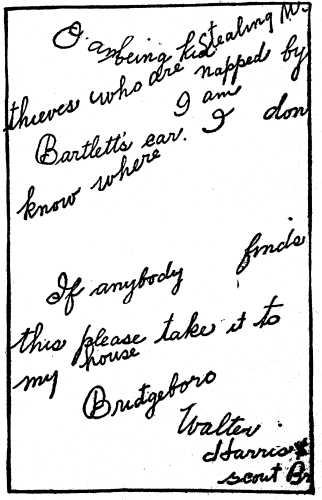 I am being kid stealing Mr.
thieves who are napped by
I am
Bartlett's car. I don
know where
If anybody finds
this please take it to
my house
Bridgeboro
Walter
Harris
scout Br